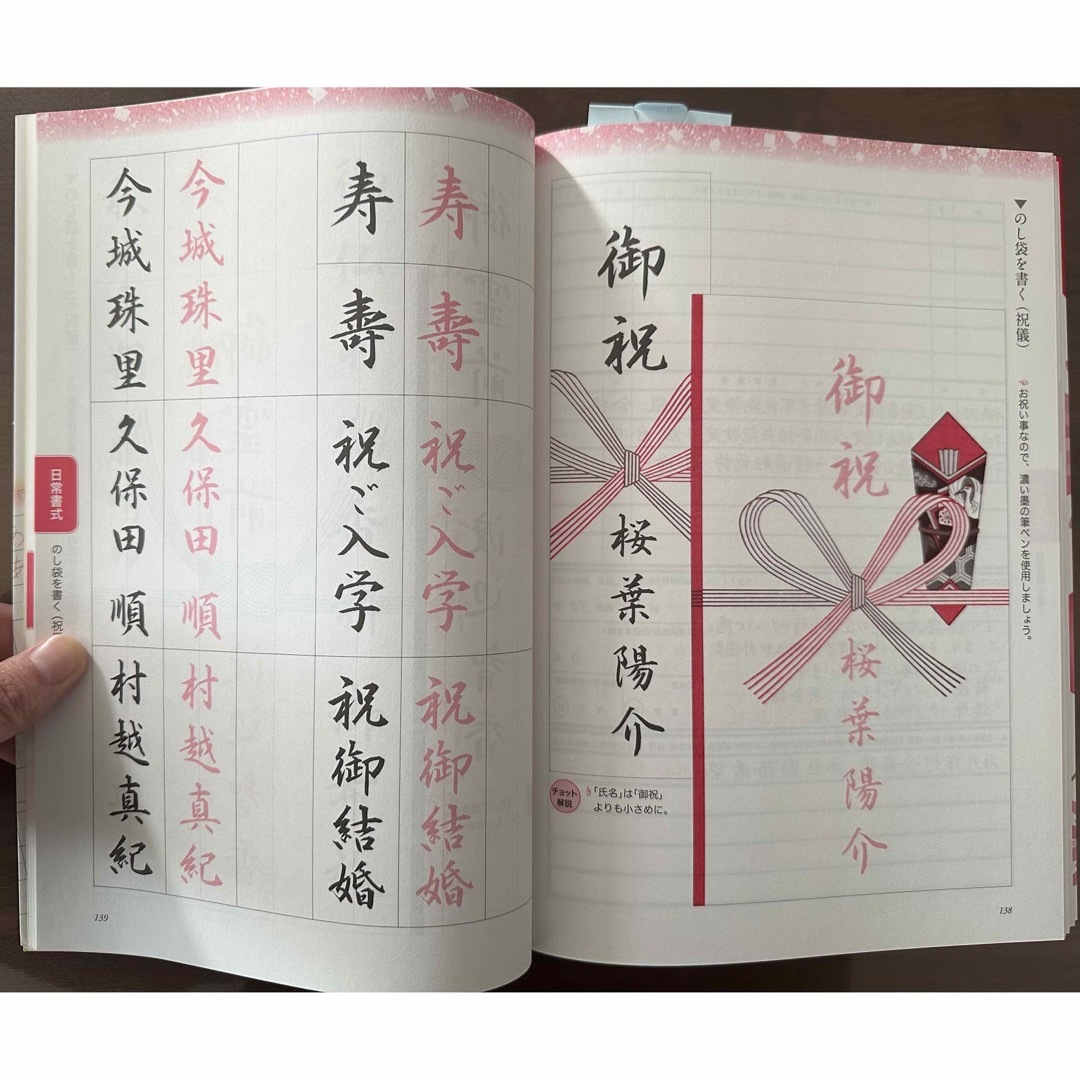 ▼のし袋を書く（祝儀）
お祝い事なので、濃い墨の筆ペンを使用しましょう。
御祝
桜葉陽介
御祝
桜葉陽介
チョット
解説
「氏名」は「御祝」
よりも小さめに。
138
寿
壽
祝ご入学
祝御結婚
寿
壽
祝ご入学
祝御結婚
今城珠里
久保田順
村越真紀
今城珠里
久保田順
村越真紀
日常書式
のし袋を書く（祝
139